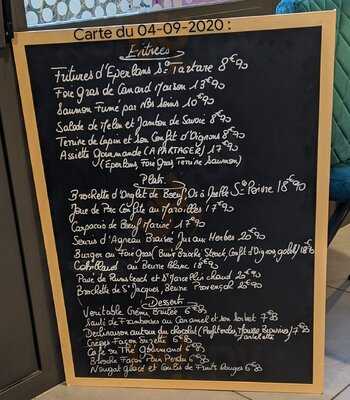 Carte du 04-09-2020 :
Entrées
Fritures d'Eperlans Sce Tartare 8€90
Foie Gras de Canard Maison 13€90
Saumon Fumé par Nos Soins 10€90
Salade de Melon et Jambon de Savoie 8€90
Terrine de Lapin et son Confit d'Oignons 8€90
Assiette Gourmande (A PARTAGER) 17€90
(Eperlans, Foie Gras, Terrine, Saumon)
Plats
Brochette d'Onglet de Boeuf, Os à Moelle Sce Poivre 18€90
Joue de Porc Confite au Maroilles 17€90
Carpaccio de Boeuf Mariné 17€90
Souris d'Agneau Braisée Jus aux Herbes 20€90
Burger au Foie Gras (Bun's Brioché, Steack, Confit d'Oignon, ) 18€90
Cabillaud au Beurre Blanc 18€90
Pavé de Rumsteack et St Marcellin chaud 20€90
Brochette de St Jacques, Beurre Provençal 20€90
Desserts
Véritable Crème Brulée 6€80
Sauté de Framboises au Caramel et son sorbet 7€80
Déclinaison autour du chocolat (Profiterole, Mousse, Brownies) 7€80
Tartelette
Crêpes Façon Suzette 6€80
Café ou Thé Gourmand 6€80
Brioche Façon Pain Perdu 6€80
Nougat glacé et Coulis de Fruits Rouges 6€80